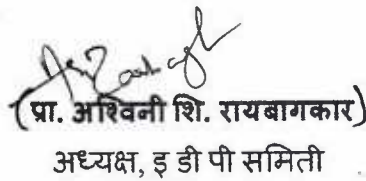 (प्रा. अश्विनी शि. रायबागकार)
अध्यक्ष, इ डी पी समिती